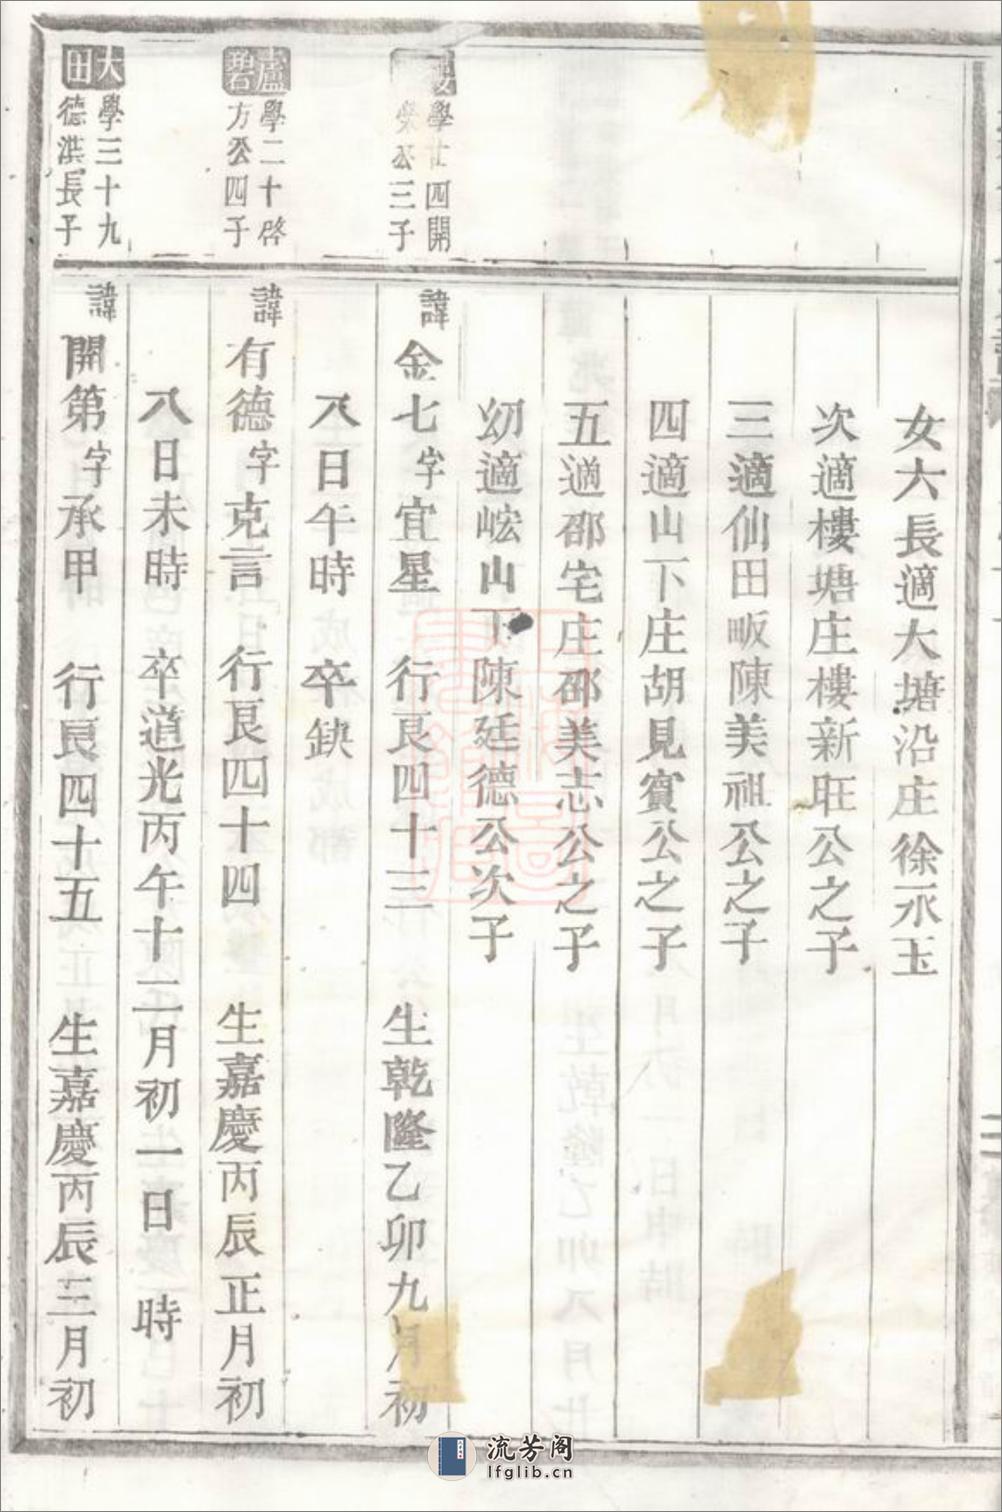 女六長適大塘沿庄徐永玉
次適樓塘庄樓新旺公之子
三適仙田畈陳美祖公之子
四適山下庄胡見賓公之子
五適邵宅庄邵美志公之子
幼適崆山下陳廷德公次子
學廿四開
榮公三子
諱金七字宜星 行艮四十三 生乾隆乙卯九月初
八日午時 卒缺
盧
碧
學二十啓
方公四子
諱有德字克言 行艮四十四 生嘉慶丙辰正月初
八日未時 卒道光丙午十二月初一日 時
大
田
學三十九
德淇長子
諱開第字承甲 行艮四十五 生嘉慶丙辰三月初
流芳阁
lfglib.cn